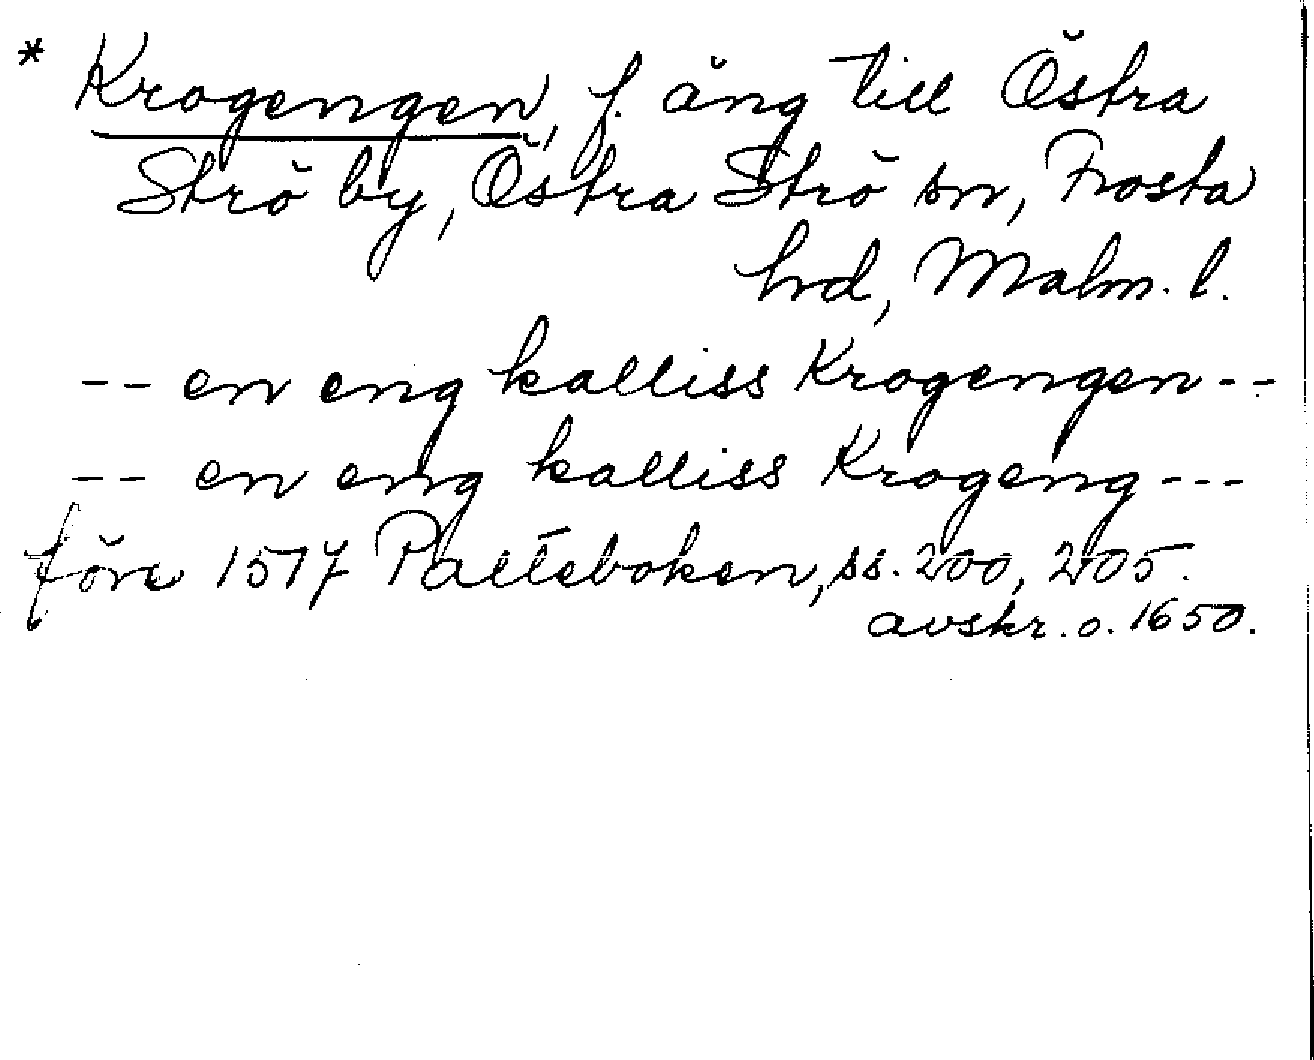 * Krogengen, f. äng till Östra
Strö by, Östra Strö sn, Frosta
hrd, Malm. l.
-- en eng kalliss Krogengen --
-- en eng kalliss Krogeng ---
före 1517 Palteboken, ss. 200, 205.
avskr. o. 1650.